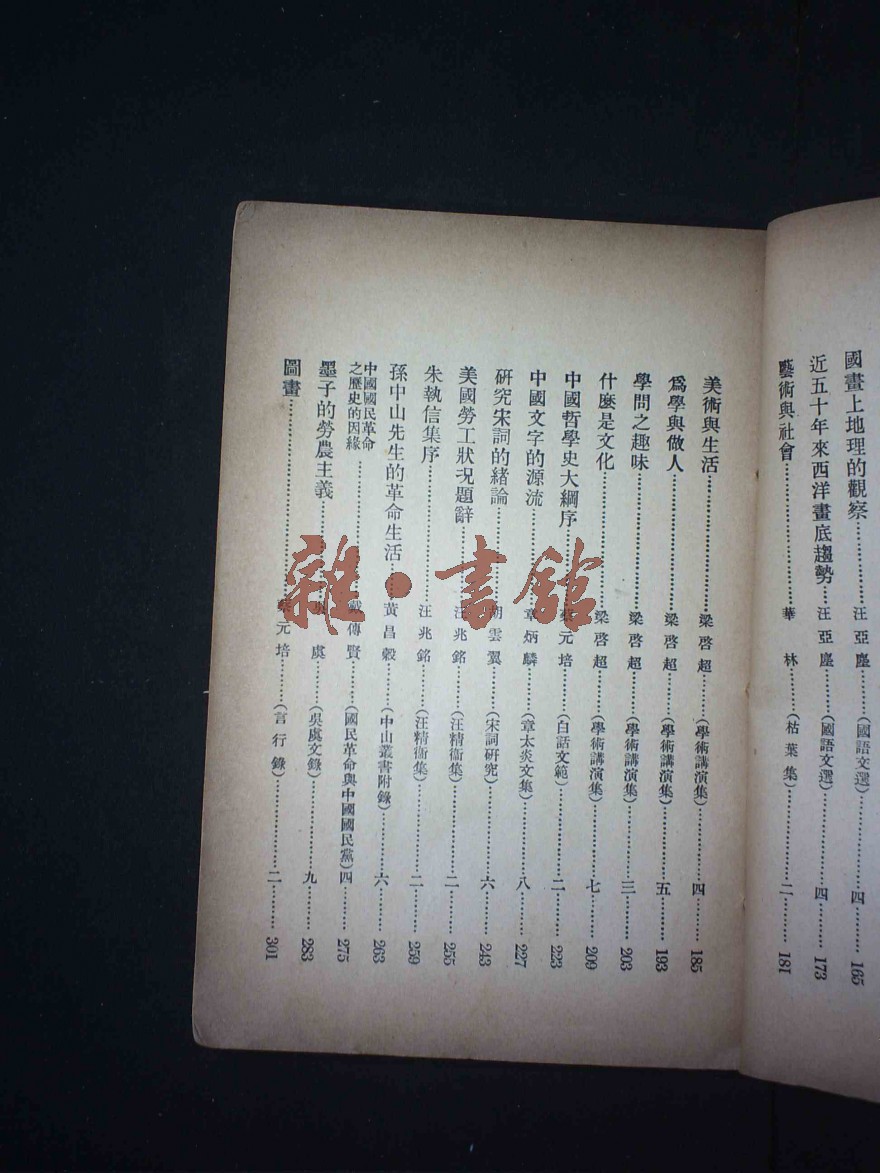 國畫上地理的觀察……汪亞塵……(國語文選)……四……165
近五十年來西洋畫底趨勢……汪亞塵……(國語文選)……四……173
藝術與社會……華林……(枯葉集)……二……181
美術與生活……梁啓超……(學術講演集)……四……185
爲學與做人……梁啓超……(學術講演集)……五……193
學問之趣味……梁啓超……(學術講演集)……三……203
什麼是文化……梁啓超……(學術講演集)……七……209
中國哲學史大綱序……蔡元培……(白話文範)……二……223
中國文字的源流……章炳麟……(章太炎文集)……八……227
研究宋詞的緒論……胡雲翼……(宋詞研究)……六……243
美國勞工狀况題辭……汪兆銘……(汪精衞集)……二……255
朱執信集序……汪兆銘……(汪精衞集)……二……259
孫中山先生的革命生活……黃昌穀……(中山叢書附錄)……六……263
中國國民革命
之歷史的因緣……戴傳賢……(國民革命與中國國民黨)四……275
墨子的勞農主義……吳虞……(吳虞文錄)……九……283
圖畫……蔡元培……(言行錄)……二……301
雜·書館